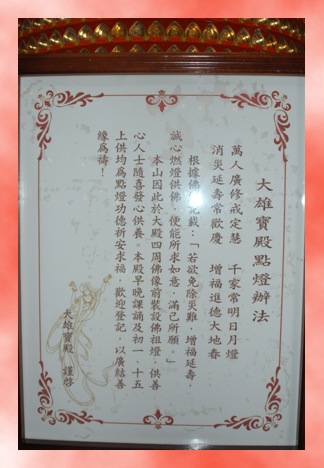 大雄寶殿點燈辦法
萬人廣修戒定慧　千家常明日月燈
消災延壽常歡慶　增福進德大地春
根據佛經記載：「若欲免除災難，增福延壽，
誠心燃燈供佛，便能所求如意，滿己所願。」
本山因此於大殿四周佛像前裝設佛祖燈，供善
心人士隨喜發心供養。本殿早晚課誦及初一、十五
上供均為點燈功德祈安求福，歡迎登記，以廣結善
緣為禱！
大雄寶殿　謹啓